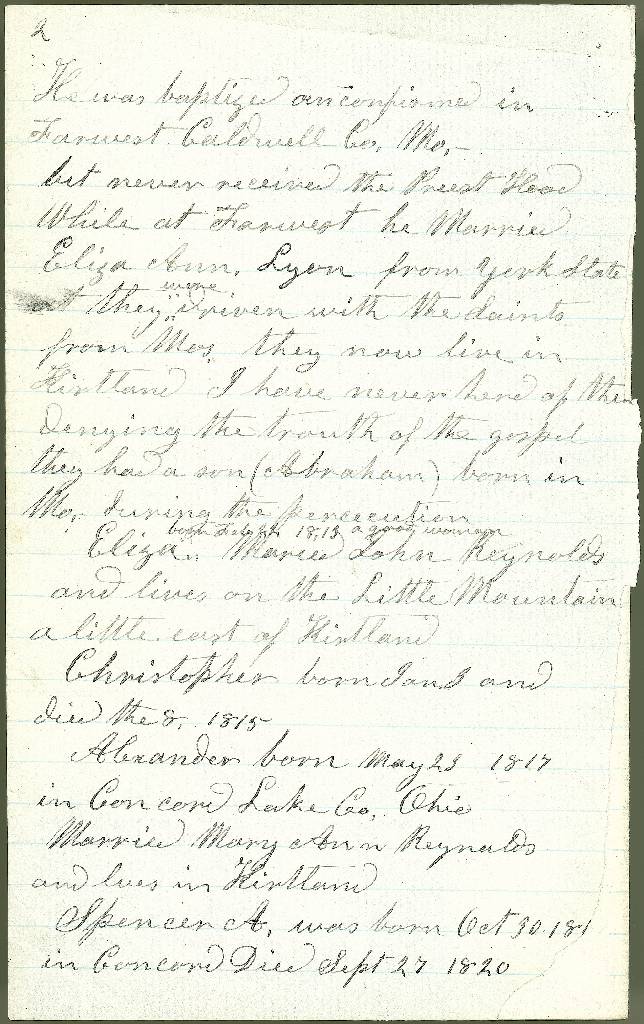 2
He was baptized anconfirmed in
Farwest Caldwell Co, Mo,-
but never received the Preest Hood
While at Farwest he Married
Eliza Ann, Lyon from York State
were
they driven with the Saints
from Mos, they now live in
Kirtland I have never herd of them
denying the trouth of the gospel
they had a son (Abraham) born in
Mo, during the percecution
born 1813 a good woman
Eliza. Married John Reynolds
and lives on the Little Mountain
a little east of Kirtland
Christopher born Jan and
died the 8, 1815
Alexander born May 23 1817
in Concord Lake Co, Ohio
Married Mary Ann Reynalds
and lives in Kirtland
Spencer A, was born Oct 30 181
in Concord Died Sept 27 1820